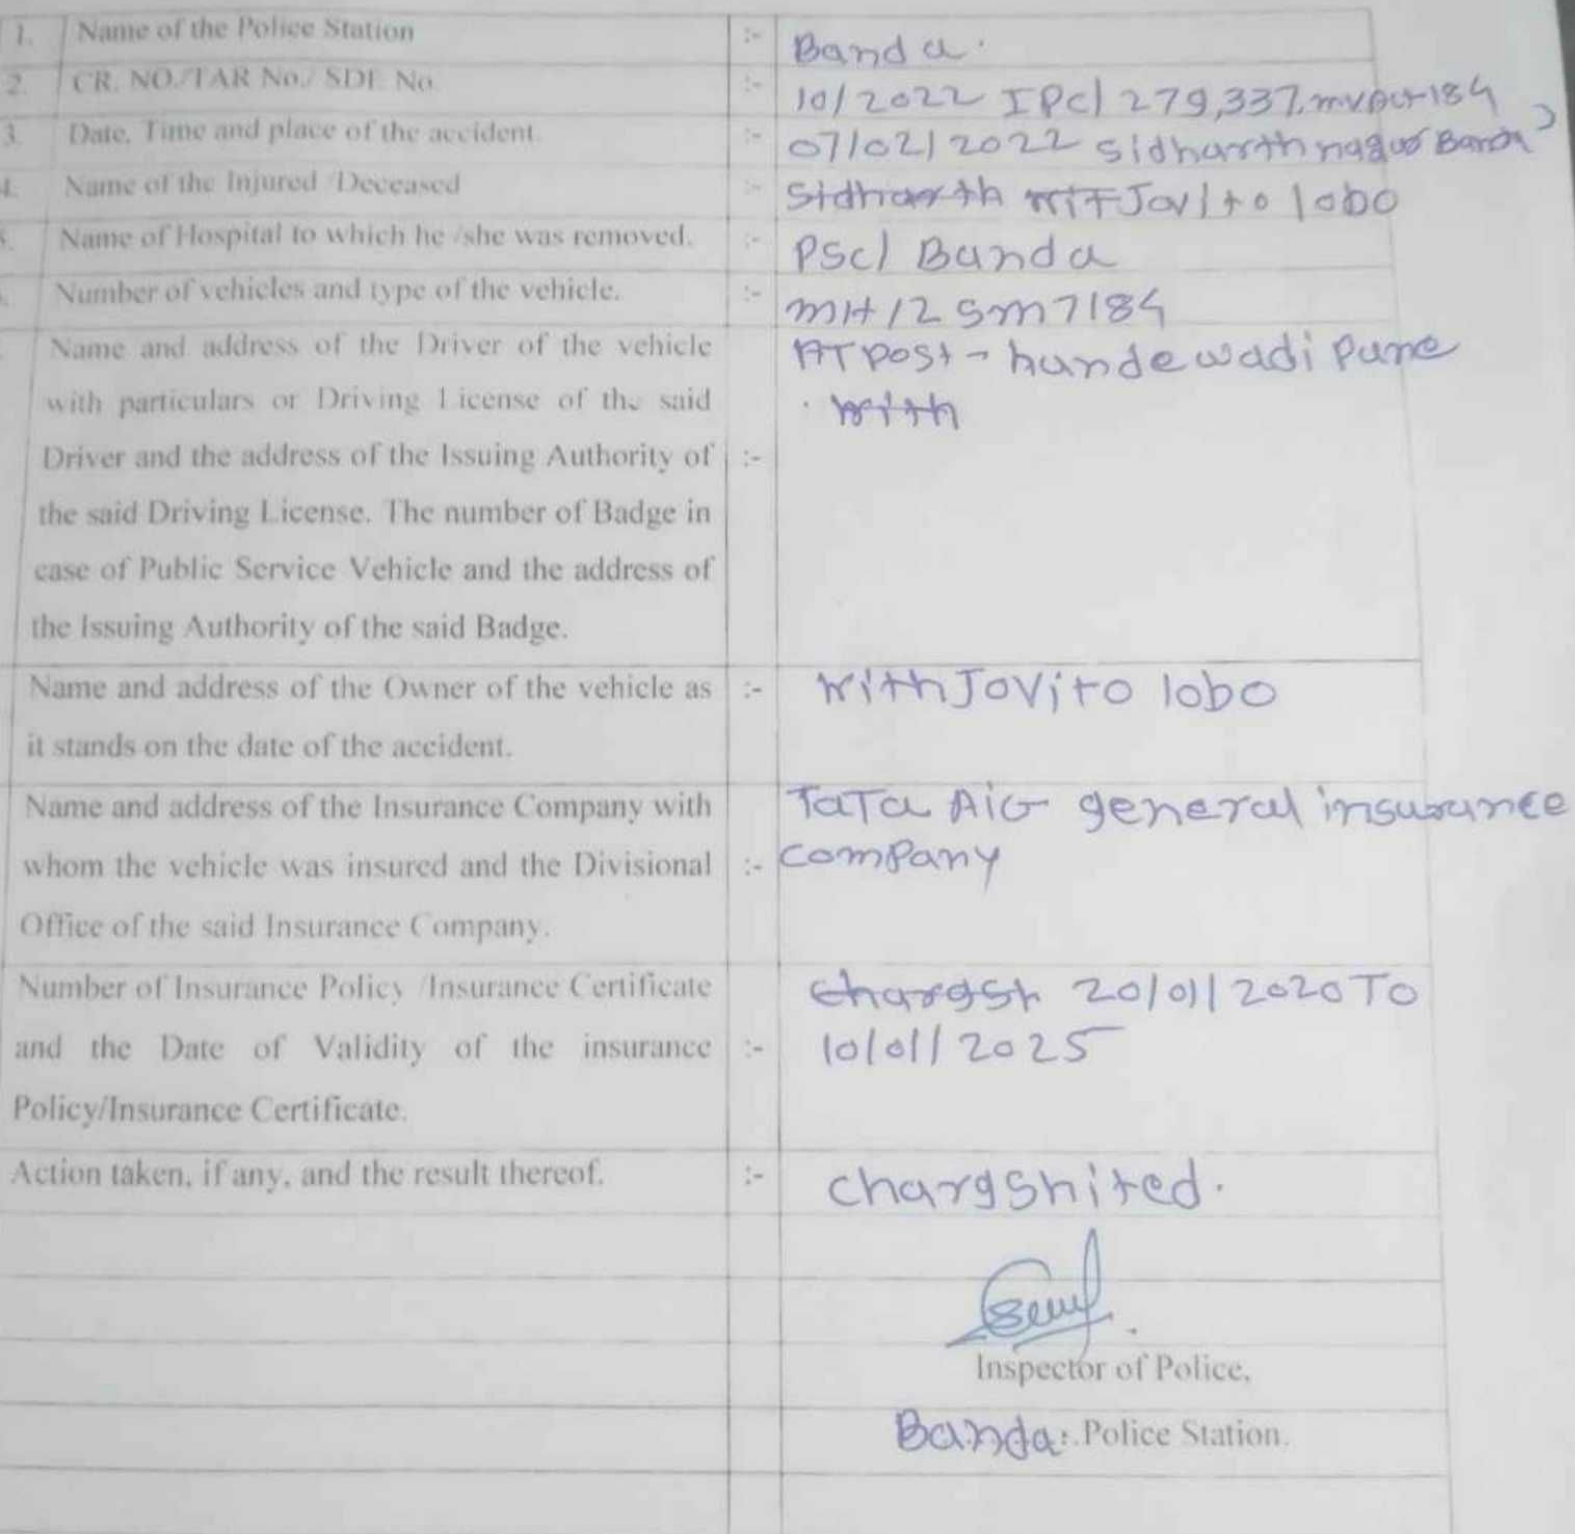 1. Name of the Police Station :- Banda.
2. CR. NO./TAR No./ SDE No. :- 10/2022 IPC/ 279,337, mvAct-184
3. Date, Time and place of the accident. :- 07/02/2022 Sidharth nagar Banda
4. Name of the Injured /Deceased :- Jovito lobo
Name of Hospital to which he /she was removed. :- PSC/ Banda
Number of vehicles and type of the vehicle. :- MH12 SM7184
Name and address of the Driver of the vehicle AT Post - hundewadi Pune
with particulars or Driving License of the said
Driver and the address of the Issuing Authority of :-
the said Driving License. The number of Badge in
case of Public Service Vehicle and the address of
the Issuing Authority of the said Badge.
Name and address of the Owner of the vehicle as :- Jovito lobo
it stands on the date of the accident.
Name and address of the Insurance Company with TaTa AiG general insurance
whom the vehicle was insured and the Divisional :- company
Office of the said Insurance Company.
Number of Insurance Policy /Insurance Certificate 20/01/2020 To
and the Date of Validity of the insurance :- 10/01/2025
Policy/Insurance Certificate.
Action taken, if any, and the result thereof. :- chargshited.
Inspector of Police,
Banda Police Station.